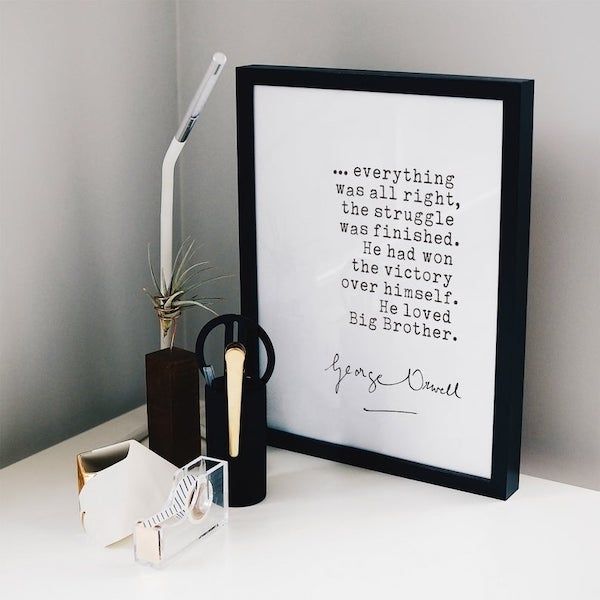 ... everything
was all right,
the struggle
was finished.
He had won
the victory
over himself.
He loved
Big Brother.
George Orwell